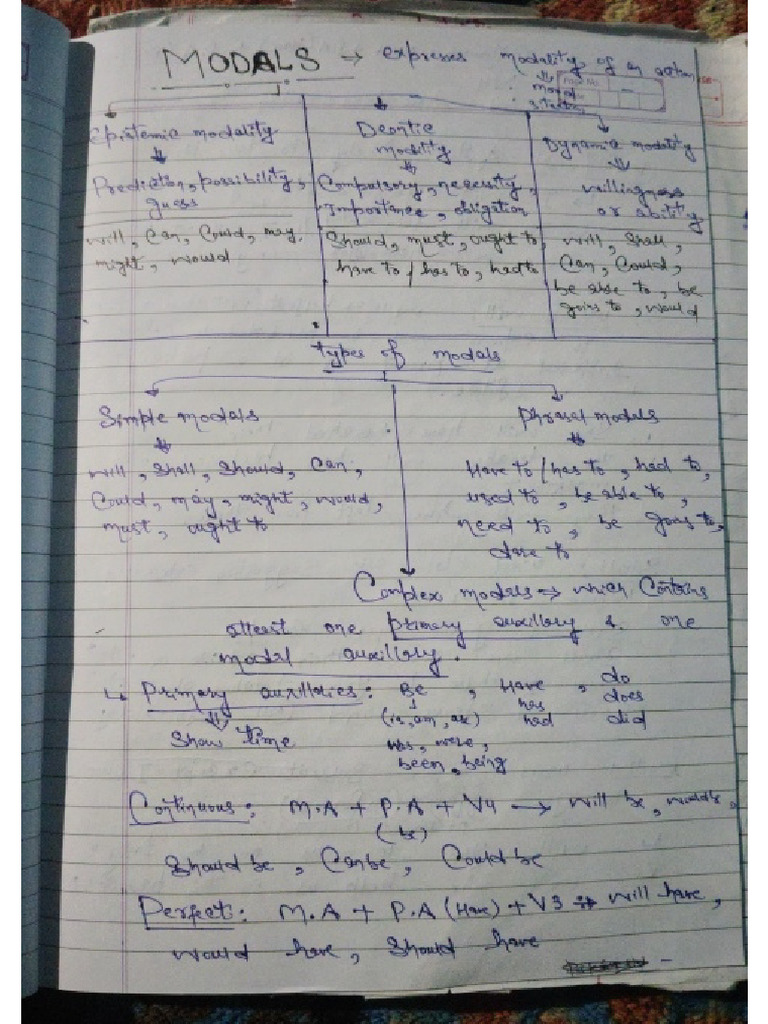 MODALS → expresses modality of an action
Epistemic modality
Prediction, possibility,
guess
will, Can, Could, may,
might, would
Deontic
modality
Compulsory, necessity,
importance, obligation
Should, must, ought to
have to / has to, had to
Dynamic modality
willingness
or ability
will, Shall,
Can, Could,
be able to, be
going to, would
types of modals
Simple modals
will, Shall, Should, Can,
Could, may, might, would,
must, ought to
Phrasal modals
Have to / has to, had to,
used to, be able to,
need to, be going to,
dare to
Complex modals → which Contains
atleast one primary auxillary & one
modal auxillary.
Primary auxillaries: Be, Have, do
(is, am, are) has does
was, were, had did
been, being
Show time
Continuous: M.A + P.A + V4 → will be, would be,
(be)
Should be, Can be, Could be
Perfect: M.A + P.A (Have) + V3 → will have,
would have, Should have